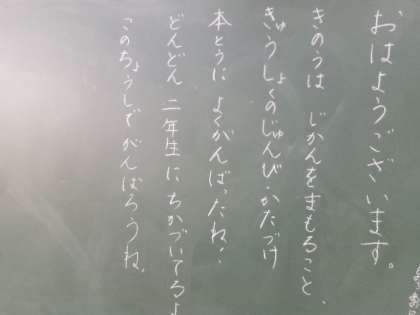 おはようございます。
きのうは じかんをまもること、
きゅうしょくのじゅんび・かたづけ
本とうに よくがんばったね!
どんどん 二年生に ちかづいてるよ
このちょうしで がんばろうね。